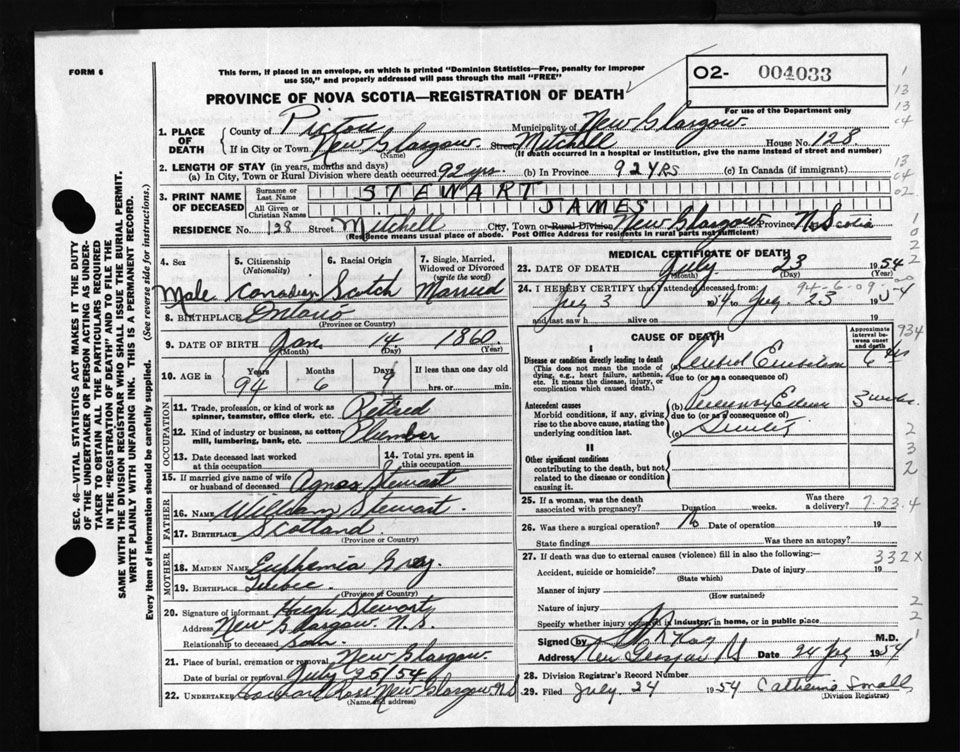 FORM 6
This form, if placed in an envelope, on which is printed "Dominion Statistics—Free, penalty for improper
use $50," and properly addressed will pass through the mail "FREE"
O2- 004033
PROVINCE OF NOVA SCOTIA—REGISTRATION OF DEATH
For use of the Department only
1. PLACE OF DEATH
County of Pictou Municipality of New Glasgow.
If in City or Town New Glasgow. Street Mitchell House No. 128
(Name) (If death occurred in a hospital or institution, give the name instead of street and number)
2. LENGTH OF STAY (in years, months and days)
(a) In City, Town or Rural Division where death occurred 92 yrs. (b) In Province 92 YRS (c) In Canada (if immigrant)
3. PRINT NAME OF DECEASED
Surname or Last Name STEWART
All Given or Christian Names JAMES
RESIDENCE No. 128 Street Mitchell City, Town or Rural Division New Glasgow Province N. Scotia
(Residence means usual place of abode. Post Office Address for residents in rural parts not sufficient)
4. Sex Male
5. Citizenship (Nationality) Canadian
6. Racial Origin Scotch
7. Single, Married, Widowed or Divorced (write the word) Married
8. BIRTHPLACE Ontario
(Province or Country)
9. DATE OF BIRTH Jan. 14 1860
(Month) (Day) (Year)
10. AGE in Years Months Days If less than one day
94 6 9 hrs. or min.
OCCUPATION
11. Trade, profession, or kind of work as spinner, teamster, office clerk, etc. Retired
12. Kind of industry or business, as cotton mill, lumbering, bank, etc. Plumber
13. Date deceased last worked at this occupation
14. Total yrs. spent in this occupation
15. If married give name of wife or husband of deceased Agnes Stewart
FATHER
16. NAME William Stewart.
17. BIRTHPLACE Scotland
(Province or Country)
MOTHER
18. MAIDEN NAME Euphemia Gray.
19. BIRTHPLACE Quebec.
(Province or Country)
20. Signature of informant Hugh Stewart
Address New Glasgow. N.S.
Relationship to deceased son.
21. Place of burial, cremation or removal New Glasgow.
Date of burial or removal July 25/54
22. UNDERTAKER Ross New Glasgow. N.S.
(Name and address)
MEDICAL CERTIFICATE OF DEATH
23. DATE OF DEATH July 23 1954
(Month) (Day) (Year)
94-6-09-
24. I HEREBY CERTIFY that I attended deceased from:
3 1954 to 23 1954
and last saw h alive on 19
CAUSE OF DEATH
Approximate interval between onset and death
I
Disease or condition directly leading to death
(This does not mean the mode of dying, e.g., heart failure, asthenia, etc. It means the disease, injury, or complication which caused death.)
(a) Cerebral Embolism
due to (or as a consequence of)
Antecedent causes
Morbid conditions, if any, giving rise to the above cause, stating the underlying condition last.
(b) Edema 3 weeks
due to (or as a consequence of)
(c) Senility
II
Other significant conditions
contributing to the death, but not related to the disease or condition causing it.
25. If a woman, was the death associated with pregnancy? Duration weeks. Was there a delivery? 7.23.4
26. Was there a surgical operation? No Date of operation 19
State findings Was there an autopsy?
27. If death was due to external causes (violence) fill in also the following:— 332X
Accident, suicide or homicide? Date of injury 19
(State which)
Manner of injury
(How sustained)
Nature of injury
Specify whether injury occurred in industry, in home, or in public place
Signed by M.D.
Address New Glasgow NS Date 24 1954
28. Division Registrar's Record Number
29. Filed July. 24 1954 Catherine Small
(Division Registrar)
SEC. 46—VITAL STATISTICS ACT MAKES IT THE DUTY
OF THE UNDERTAKER OR PERSON ACTING AS UNDER-
TAKER TO OBTAIN ALL THE PARTICULARS REQUIRED
IN THE "REGISTRATION OF DEATH" AND TO FILE THE
SAME WITH THE DIVISION REGISTRAR WHO SHALL ISSUE THE BURIAL PERMIT.
WRITE PLAINLY WITH UNFADING INK. THIS IS A PERMANENT RECORD.
Every item of information should be carefully supplied. (See reverse side for instructions.)